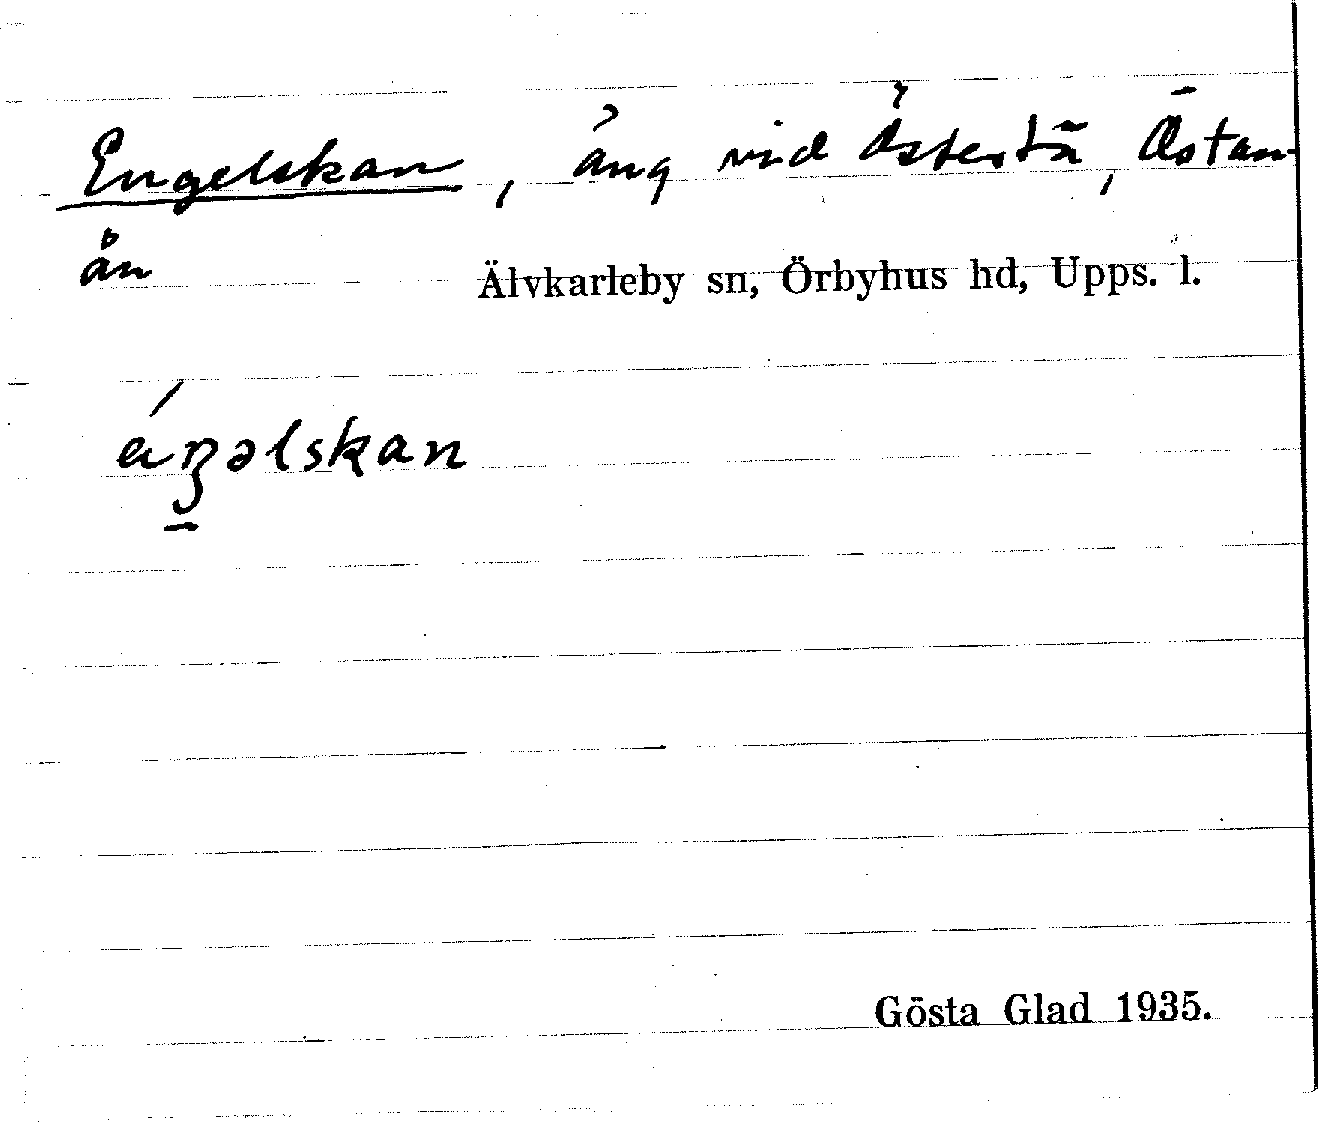 Engelskan, äng vid Östertä, Östan-
ån
Älvkarleby sn, Örbyhus hd, Upps. l.
Gösta Glad 1935.